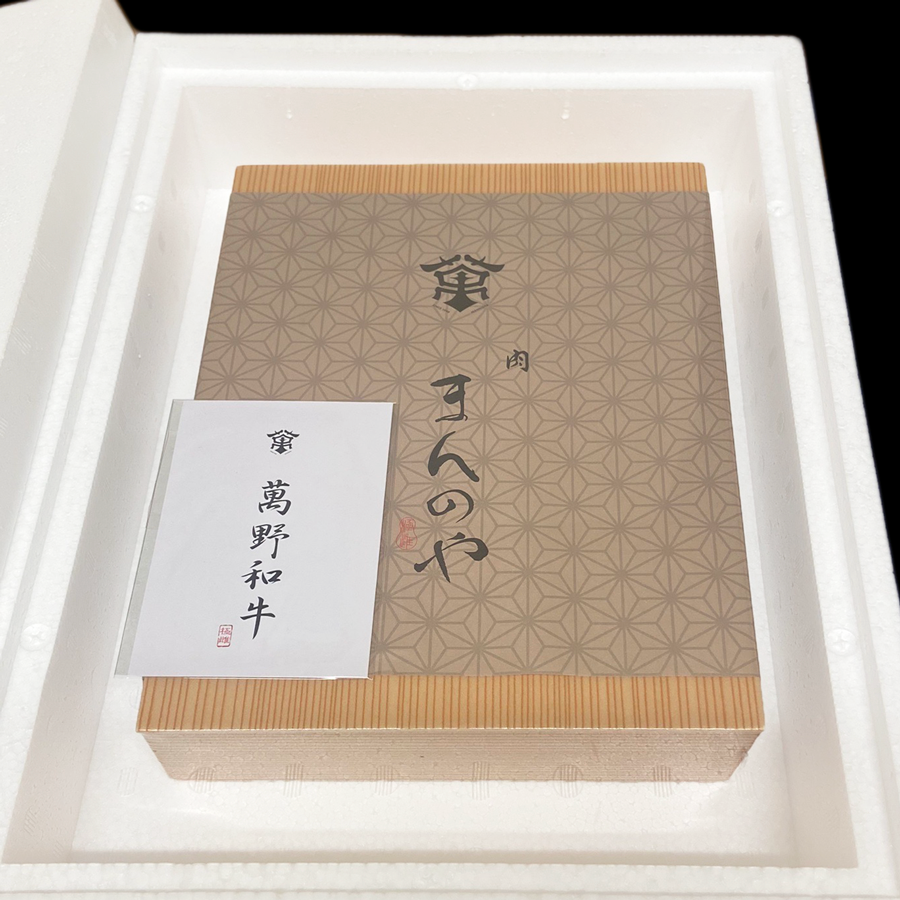 肉
まんのや
萬野和牛
極雌